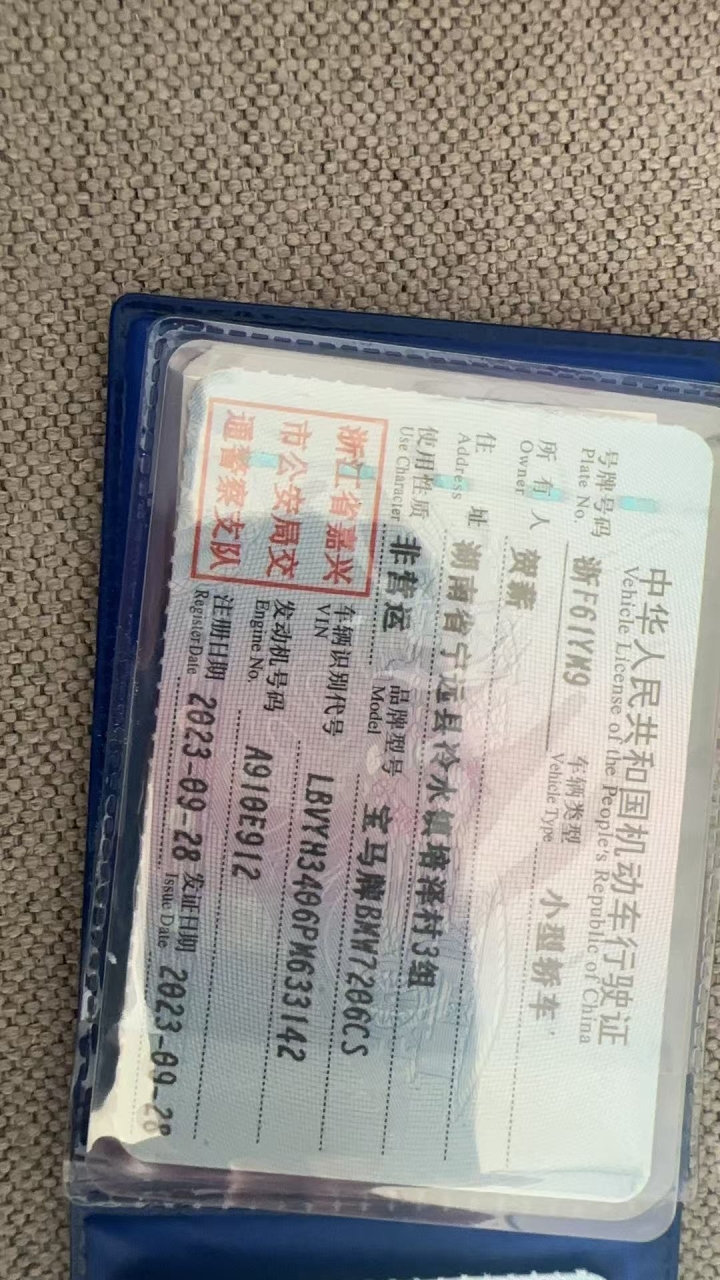 中华人民共和国机动车行驶证
Vehicle License of the People's Republic of China
号牌号码 浙F61YM9 车辆类型 小型轿车
Plate No. Vehicle Type
所有人 贺新
Owner
住址 湖南省宁远县冷水镇 村3组
Address
使用性质 非营运 品牌型号 宝马牌BMW7206CS
Use Character Model
浙江省嘉兴
市公安局交
通警察支队
车辆识别代号 LBVYH3406PM633142
VIN
发动机号码 A910E912
Engine No.
注册日期 2023-09-28 发证日期 2023-09-28
Register Date Issue Date